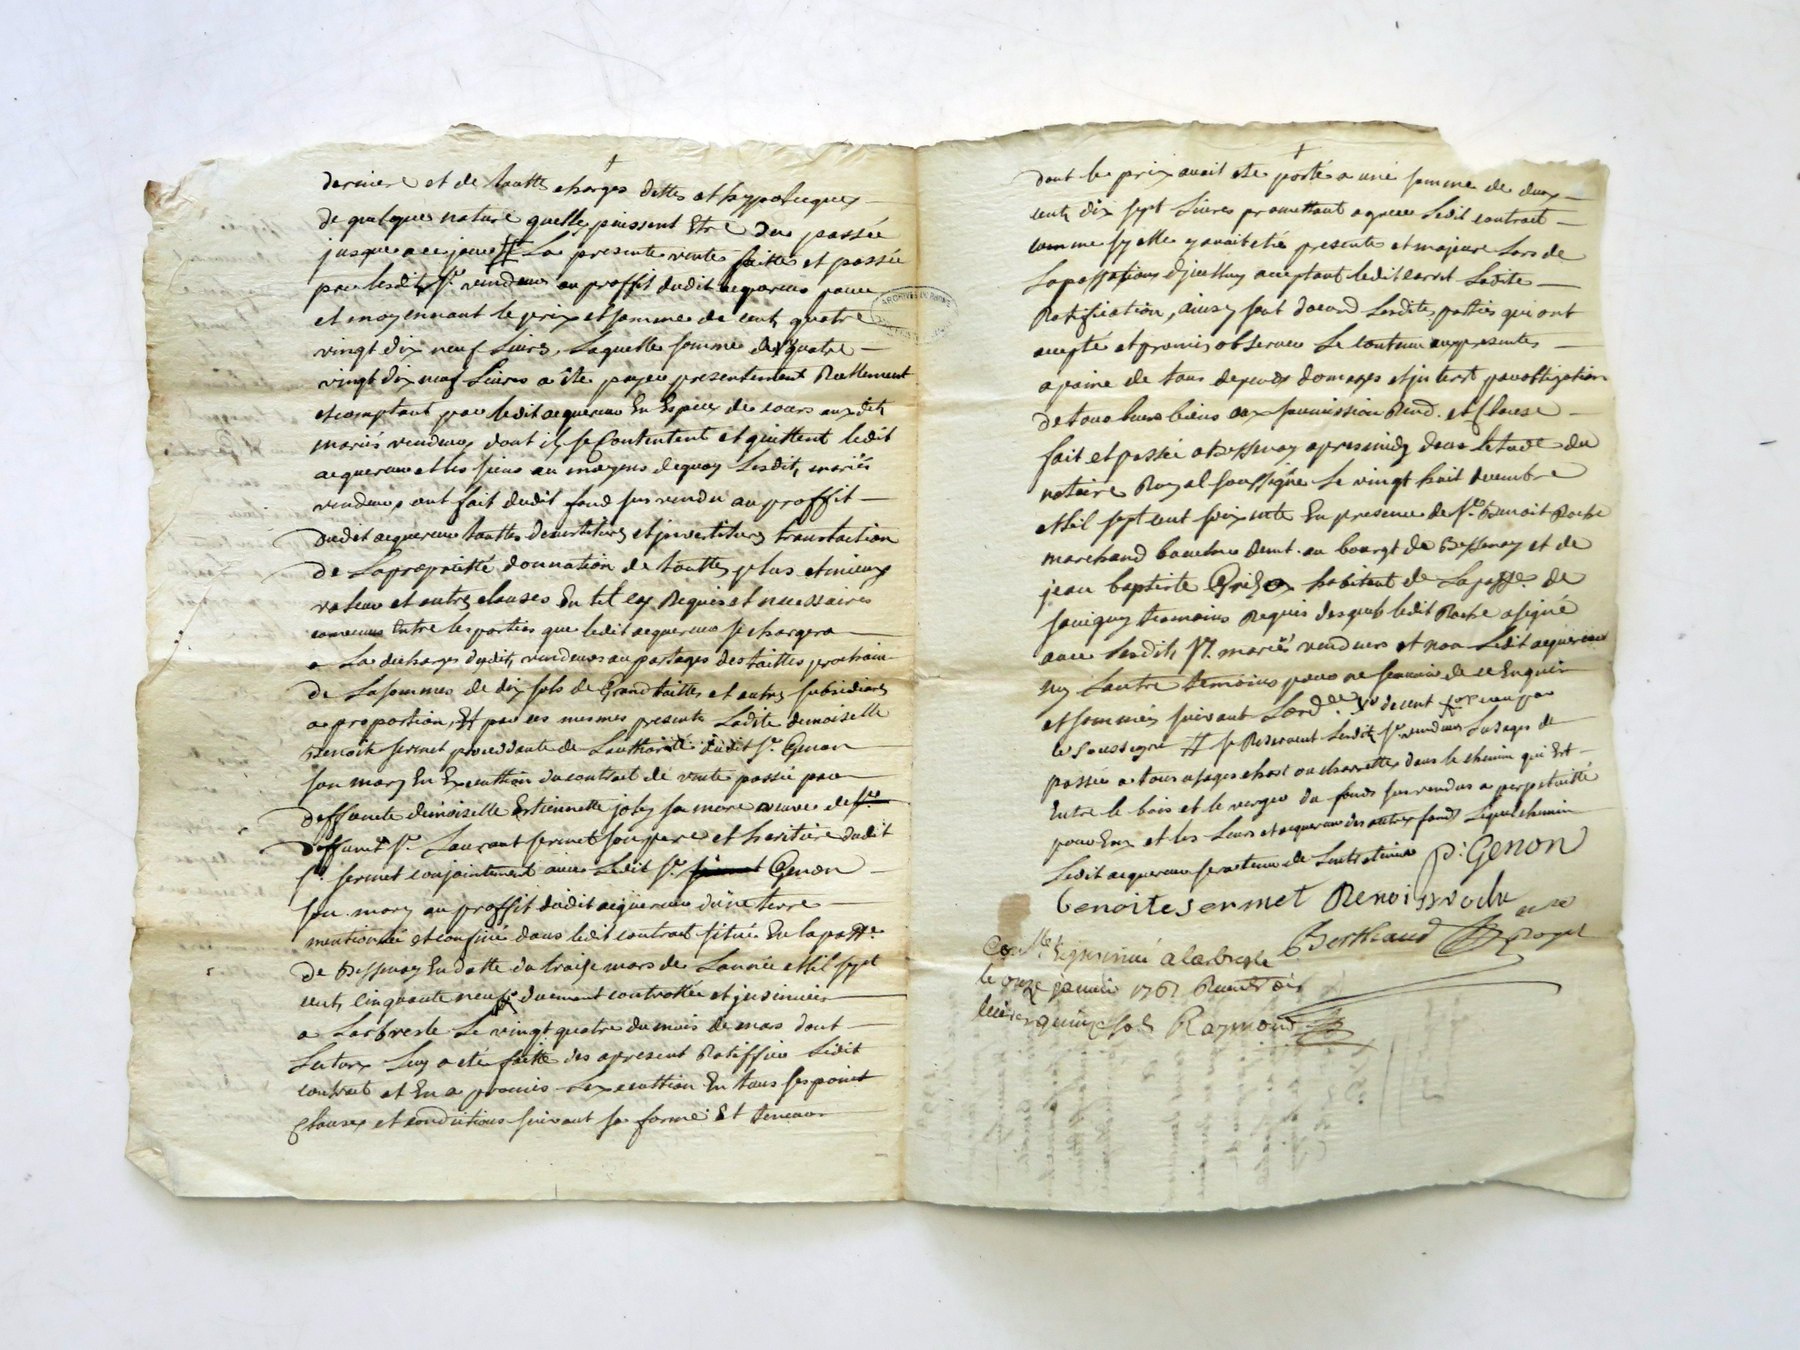 derniere et de touttes charges dettes et hypotecques
de quelques nature quelles puissent Etre du passée
jusques a ce jour # La presente vente faitte et passée
par lesdits Sr. vendeurs au proffit dudit acquereur pour
et moyennant le prix et somme de cents quatre
vingt dix neuf Livres, Laquelle somme de quatre
vingt dix neuf Livres a été payée presentement Reellement
et comptant par ledit acquereur En Especes de cours auxdits
mariés vendeurs dont ils se Contentent et quittent ledit
acquereur et les siens au moyens de quoy Lesdits mariés
vendeurs ont fait dudit fond sus vendu au proffit
dudit acquereur touttes devestitures et investitures translaction
de La propriétté donnation de touttes plus et mieux
valeur et autres clauses En tel cas Requis et necessaires
convenu Entre les parties que ledit acquereur se chargera
a La decharges dudits vendeurs au partages des tailles prochain
de La sommes de dix sols de Grand tailles et autres subsidiares
a proportion, Et par ces mesmes presente Ladite demoiselle
Benoite sermet proceddante de Lauthorité dudit Sr. Genon
son mary En Executtion du contrait de vente passée par
deffuncte demoiselle Estiennette joly sa mere veuve de
deffunt Sr. Laurant sermet son pere et heritiere dudit
Sr. sermet conjointement avec Ledit Sr. Genon
son mary au proffit dudit acquereur d'une terre
mentionnée et confinée dans ledit contrait située En la passe.
de Bessenay En datte du traise mars de L'année Mil sept
cents cinquante neuf duement controllée et jnsinuée
a Larbresle Le vingt quatre du mois de mars dont
Lecture Luy a eté faitte des apresent Ratiffie Ledit
contrait et En a promis Lexecuttion En tous ses point
Clauses et conditions suivant sa forme Et teneur
dont le prix avoit eté porté a une somme de deux
cents dix sept Livres promettant agreer Ledit contrait
comme sy elle y avoit etée presente et majeure Lors de
La passation d'jcelluy acceptant ledit Ladite
Ratification, ainsy sont d'acord Lesdites parties qui ont
accepté et promis observer Le contenu aux presentes
a paine de tous depends domages et jnterest par obligation
de tous leurs biens aux soumission Rend. et Clause
fait et passé a Bessenay apres midy dans letude du
notaire Royal soussigné Le vingt huit decembre
Mil sept cent soixante En presence de Sr. Benoit Roche
marchand boucher demt. au bourgt de Bessenay et de
jean baptiste habitant de La passe. de
savigny temoins Requis desquels ledit Roche a signé
avec lesdits Sr. mariés vendeurs et non Ledit acquereur
ny L'autre temoins pour ne scavoir de ce Enquis
et sommés suivant L'ord. Vû de cent
le Soussigné # se Reservent Lesdits Sr. vendeurs Lusages de
passée a tous usages char ou charrettes dans le chemin qui Est
Entre le bois et le verger du fonds sus vendus a perpetuitté
pour Eux et les Leurs et acquereur des autres fond Lequel chemin
Ledit acquereur sera tenu de Lentretenir P. Genon
benoite sermet Benoit roche
Berthaud nore Royal
Conlle. Et jnsinué a Larbresle
le onze janvier 1761 Receu trois
livres quinze sols Raymond
ARCHIVES DU RHÔNE